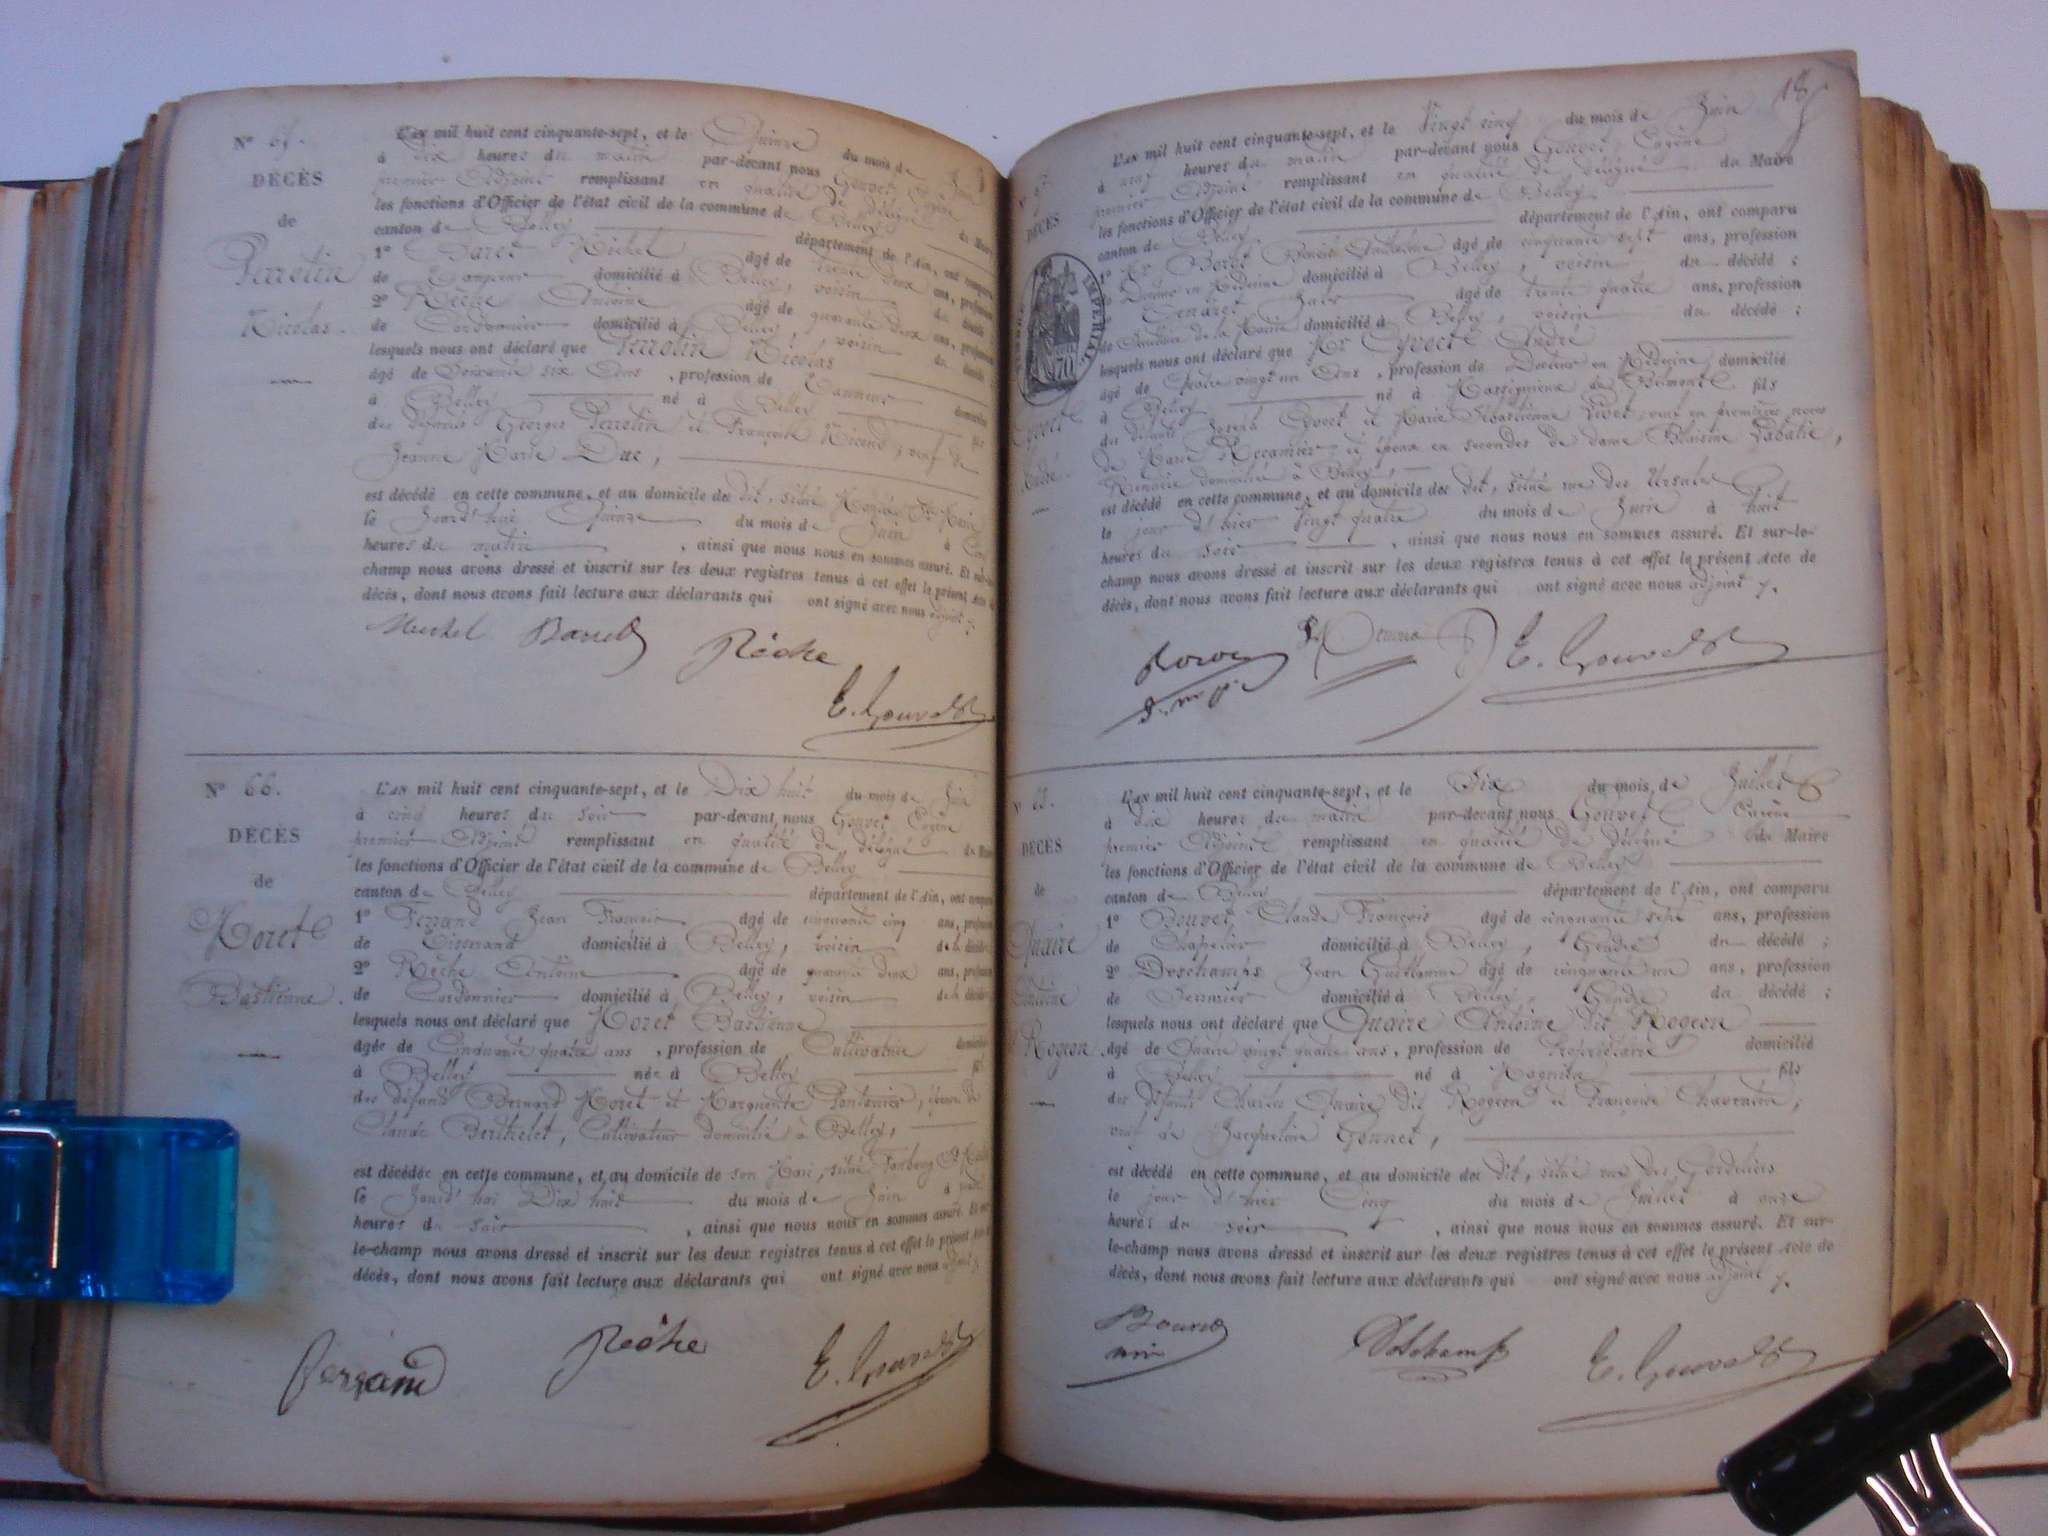 Nº 65.
DÉCÈS
de
Perrotin
Nicolas.
L'AN mil huit cent cinquante-sept, et le Quinze du mois de Juin
à dix heures du matin par-devant nous Gouvet Eugène
premier Adjoint remplissant en qualité de délégué du Maire
les fonctions d'Officier de l'état civil de la commune de Belley
canton de Belley département de l'Ain, ont comparu
1º Baret Michel âgé de trente deux ans, profession
de domicilié à Belley, voisin du décédé
2º Rèche Antoine âgé de quarante deux ans, profession
de Cordonnier domicilié à Belley, voisin du décédé
lesquels nous ont déclaré que Perrotin Nicolas
âgé de Soixante six ans, profession de Tanneur domicilié
à Belley né à Belley fils
des défunts Georges Perrotin et Françoise veuf de
Jeanne Marie Duc,
est décédé en cette commune, et au domicile du dit, situé
le Jourd'hui Quinze du mois de Juin à
heures du matin, ainsi que nous nous en sommes assuré. Et sur-le-
champ nous avons dressé et inscrit sur les deux registres tenus à cet effet le présent Acte de
décès, dont nous avons fait lecture aux déclarants qui ont signé avec nous adjoint
Michel Baret Rèche
E. Gouvet
Nº 66.
DÉCÈS
de
Moret
Bastienne.
L'AN mil huit cent cinquante-sept, et le Dix huit du mois de Juin
à cinq heures du soir par-devant nous Gouvet Eugène
premier Adjoint remplissant en qualité de délégué du Maire
les fonctions d'Officier de l'état civil de la commune de Belley
canton de Belley département de l'Ain, ont comparu
1º Ferrand Jean François âgé de cinquante cinq ans, profession
de Tisserand domicilié à Belley, voisin de la décédée
2º Rèche Antoine âgé de quarante deux ans, profession
de Cordonnier domicilié à Belley, voisin de la décédée
lesquels nous ont déclaré que Moret Bastienne
âgée de Cinquante quatre ans, profession de Cultivatrice domicilié
à Belley née à Belley fil
des défunts Bernard Moret et Marguerite Pontanier, épouse de
Claude Berthelet, Cultivateur domicilié à Belley,
est décédée en cette commune, et au domicile de son Mari, situé Faubourg St
le Jourd'hui Dix huit du mois de Juin à
heures du soir, ainsi que nous nous en sommes assuré. Et sur-
le-champ nous avons dressé et inscrit sur les deux registres tenus à cet effet le présent Acte de
décès, dont nous avons fait lecture aux déclarants qui ont signé avec nous adjoint
Ferrand Rèche E. Gouvet
18
DÉCÈS
TIMBRE IMPERIAL
Cyvoct
André.
L'AN mil huit cent cinquante-sept, et le Vingt cinq du mois de Juin
à neuf heures du matin par-devant nous Gouvet Eugène
premier Adjoint remplissant en qualité de délégué du Maire
les fonctions d'Officier de l'état civil de la commune de Belley
canton de Belley département de l'Ain, ont comparu
1º Mr Benoit Anthelme âgé de cinquante sept ans, profession
de Docteur en Médecine domicilié à Belley, voisin du décédé;
2º âgé de trente quatre ans, profession
de Secrétaire de la Mairie domicilié à Belley, voisin du décédé;
lesquels nous ont déclaré que Mr Cyvoct André
âgé de Quatre vingt un Ans, profession de Docteur en Médecine domicilié
à Belley né à Massignieu de Belmont fils
des défunts Joseph Cyvoct et Marie Sébastienne Livet, veuf en premières noces
de Marie Récamier, et époux en secondes de dame Blaisine Labatie,
Rentière domiciliée à Belley,
est décédé en cette commune, et au domicile du dit, situé rue des Ursules
le jour d'hier Vingt quatre du mois de Juin à huit
heures du soir, ainsi que nous nous en sommes assuré. Et sur-le-
champ nous avons dressé et inscrit sur les deux registres tenus à cet effet le présent Acte de
décès, dont nous avons fait lecture aux déclarants qui ont signé avec nous adjoint
E. Gouvet
DÉCÈS
de
Quaire
Antoine
Rogeon.
L'AN mil huit cent cinquante-sept, et le Six du mois de Juillet
à dix heures du matin par-devant nous Gouvet Eugène
premier Adjoint remplissant en qualité de délégué du Maire
les fonctions d'Officier de l'état civil de la commune de Belley
canton de Belley département de l'Ain, ont comparu
1º Bouvet Claude François âgé de cinquante sept ans, profession
de Chapelier domicilié à Belley, Gendre du décédé;
2º Deschamps Jean Guillaume âgé de cinquante un ans, profession
de Fermier domicilié à Belley, Gendre du décédé;
lesquels nous ont déclaré que Quaire Antoine dit Rogeon
âgé de Quatre vingt quatre ans, profession de Propriétaire domicilié
à Belley né à Magnieu fils
des défunts Charles Quaire dit Rogeon et Françoise
veuf de Jacqueline Gonnet,
est décédé en cette commune, et au domicile du dit, situé rue des Cordeliers
le jour d'hier Cinq du mois de Juillet à onze
heures du soir, ainsi que nous nous en sommes assuré. Et sur-
le-champ nous avons dressé et inscrit sur les deux registres tenus à cet effet le présent Acte de
décès, dont nous avons fait lecture aux déclarants qui ont signé avec nous adjoint
Bouvet Deschamps E. Gouvet